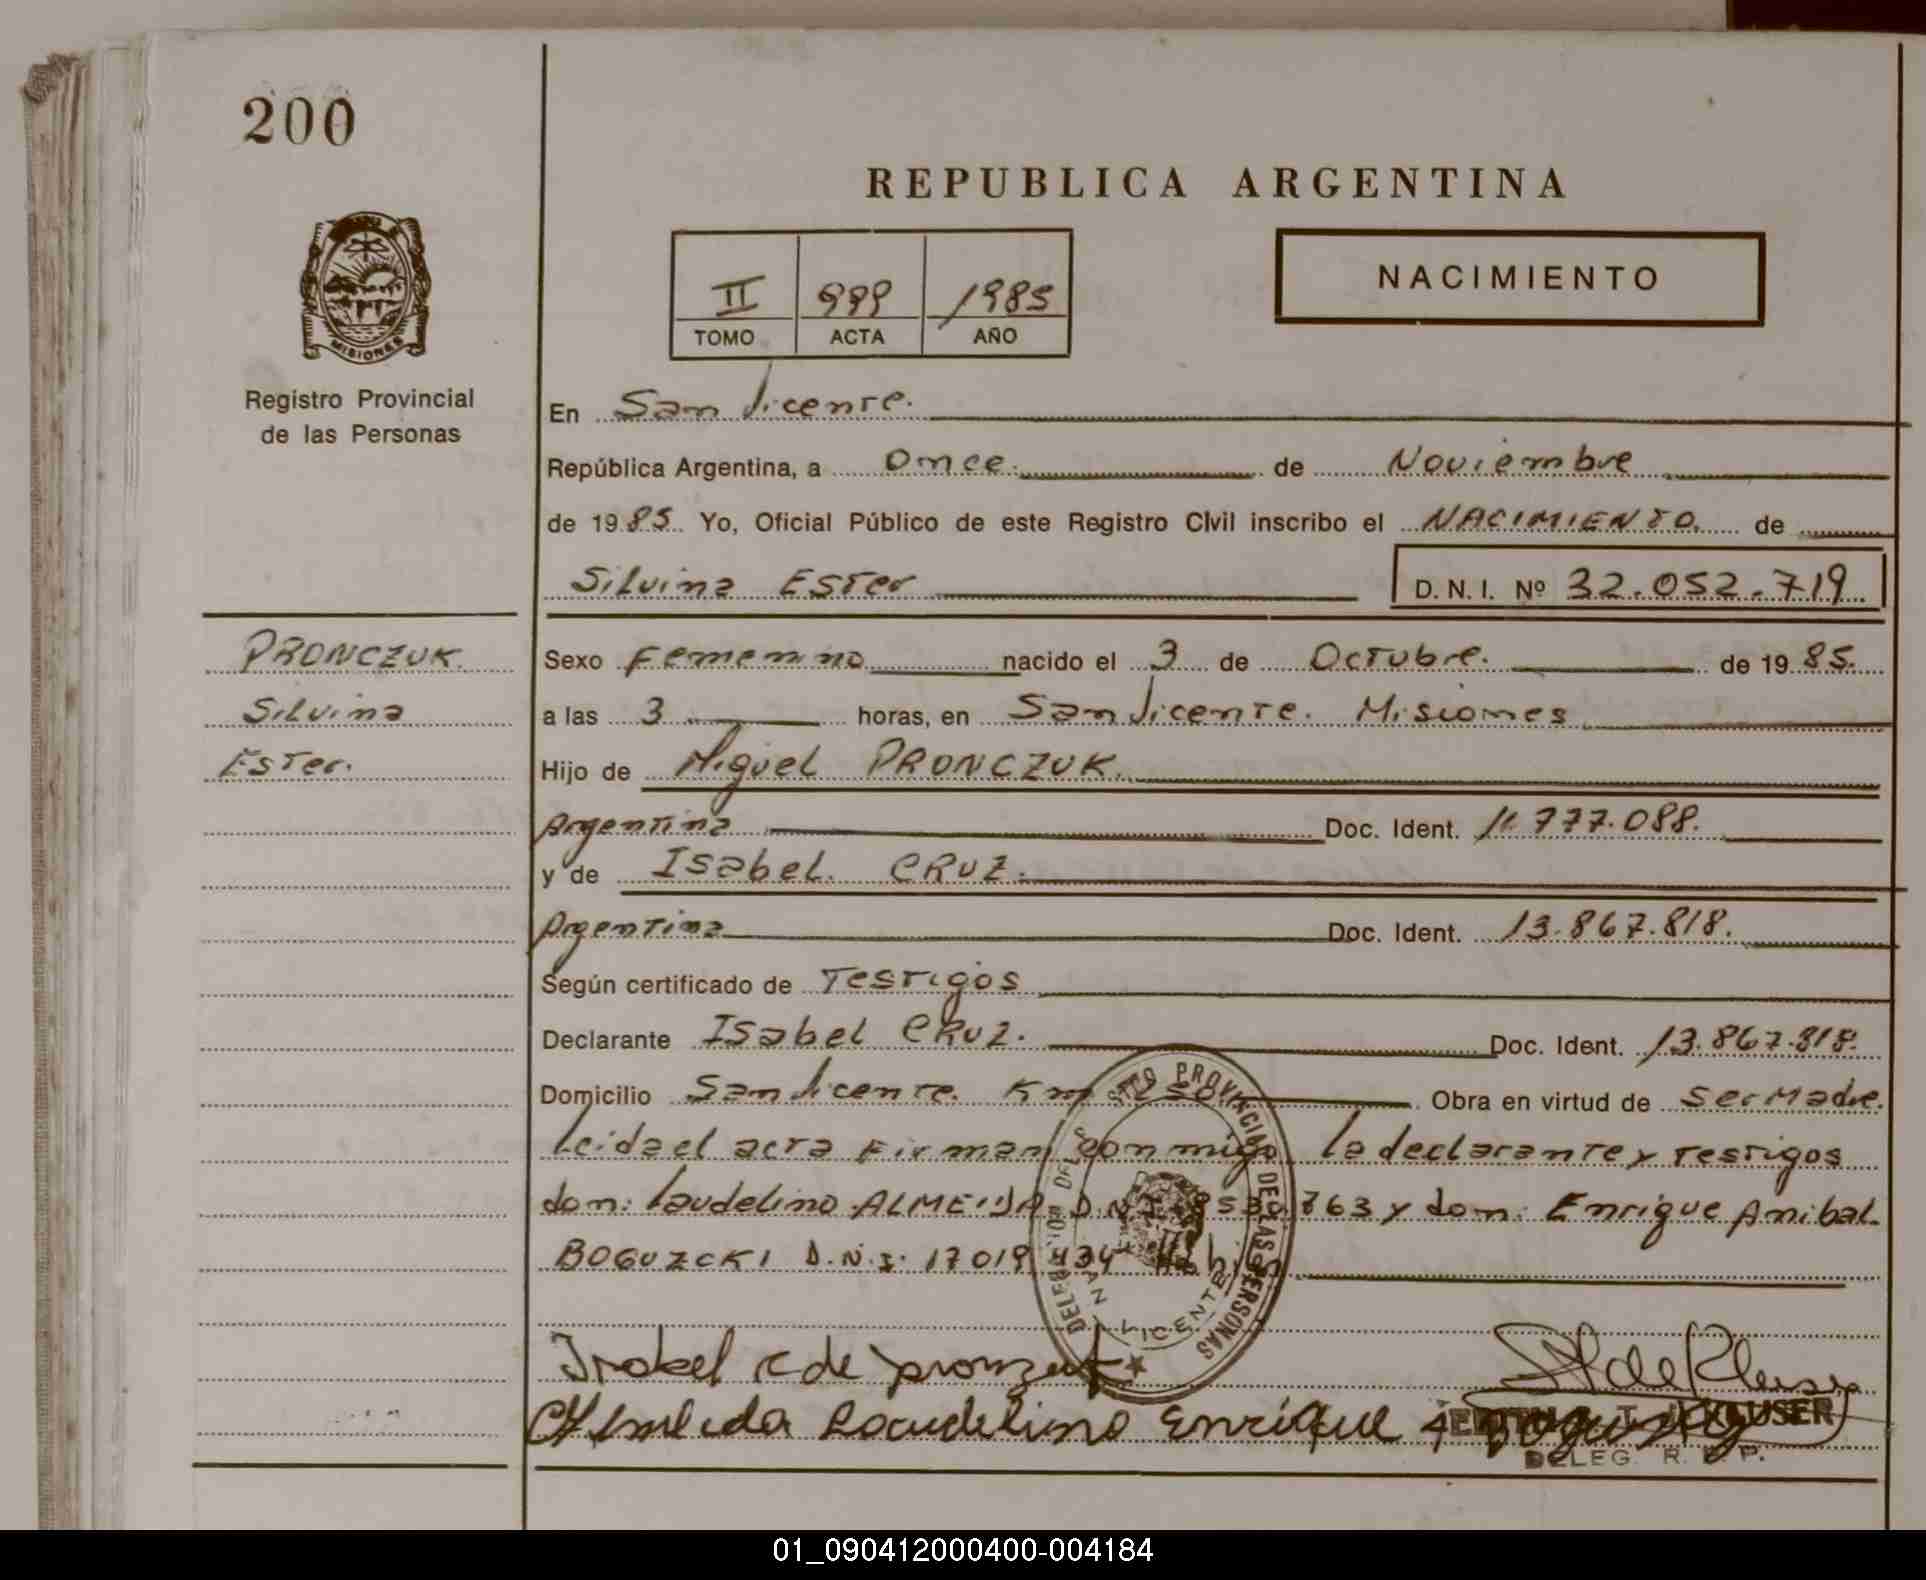 200
REPUBLICA ARGENTINA
II 999 1985
TOMO ACTA AÑO
NACIMIENTO
MISIONES
Registro Provincial
de las Personas
En San Vicente.
República Argentina, a Once. de Noviembre
de 1985. Yo, Oficial Público de este Registro Civil inscribo el NACIMIENTO. de
Silvina Ester D.N.I. Nº 32.052.719
PRONCZUK.
Silvina
Ester.
Sexo Femenino nacido el 3 de Octubre. de 1985.
a las 3 horas, en San Vicente. Misiones
Hijo de Miguel PRONCZUK.
Argentina Doc. Ident. 11.777.088.
y de Isabel. CRUZ.
Argentina Doc. Ident. 13.867.818.
Según certificado de Testigos
Declarante Isabel CRUZ. Doc. Ident. 13.867.818.
Domicilio San Vicente. Km Obra en virtud de ser Madre.
Leida el acta Firman conmigo la declarante y Testigos
don: Laudelino ALMEIDA D.N.I. 763 y don: Enrique Anibal.
BOGUZCKI D.N.I. 17019434
DELEGACION SAN VICENTE
PROVINCIAL DE LAS PERSONAS
Isabel c de pronzuk
Almeida Laudelino Enrique A
KLAUSER
DELEG. R. P. P.
01_090412000400-004184